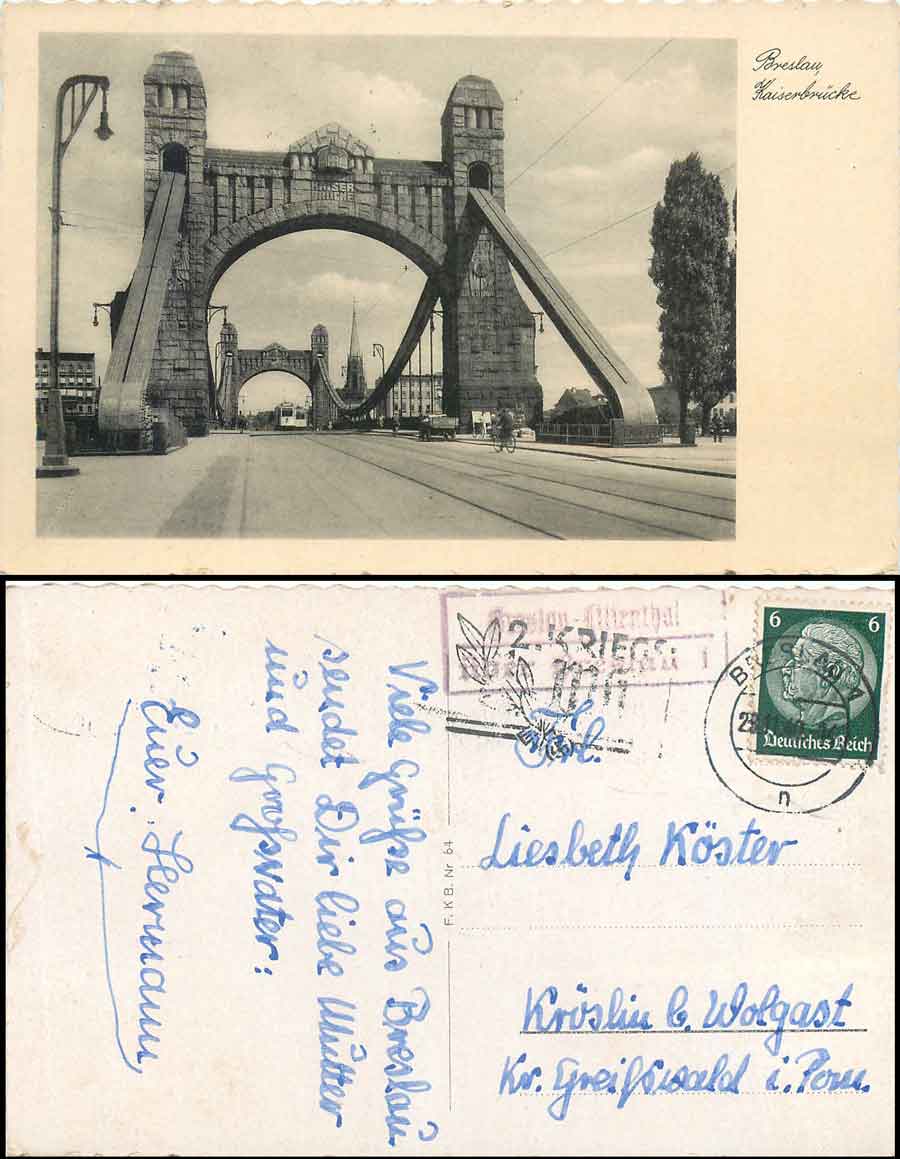 Breslau,
Kaiserbrücke
KAISER
BRÜCKE
Breslau-Lilienthal
2. KRIEGS-
über Breslau 1
WHW
6 6
Deutsches Reich
BRESLAU 1
n
Frl.
Liesbeth Köster
Kröslin b. Wolgast
Kr. Greifswald i. Pom.
F. K B. Nr 64
Viele Grüße aus Breslau
sendet Dir liebe Mutter
und Großvater:
Euer. Hermann,